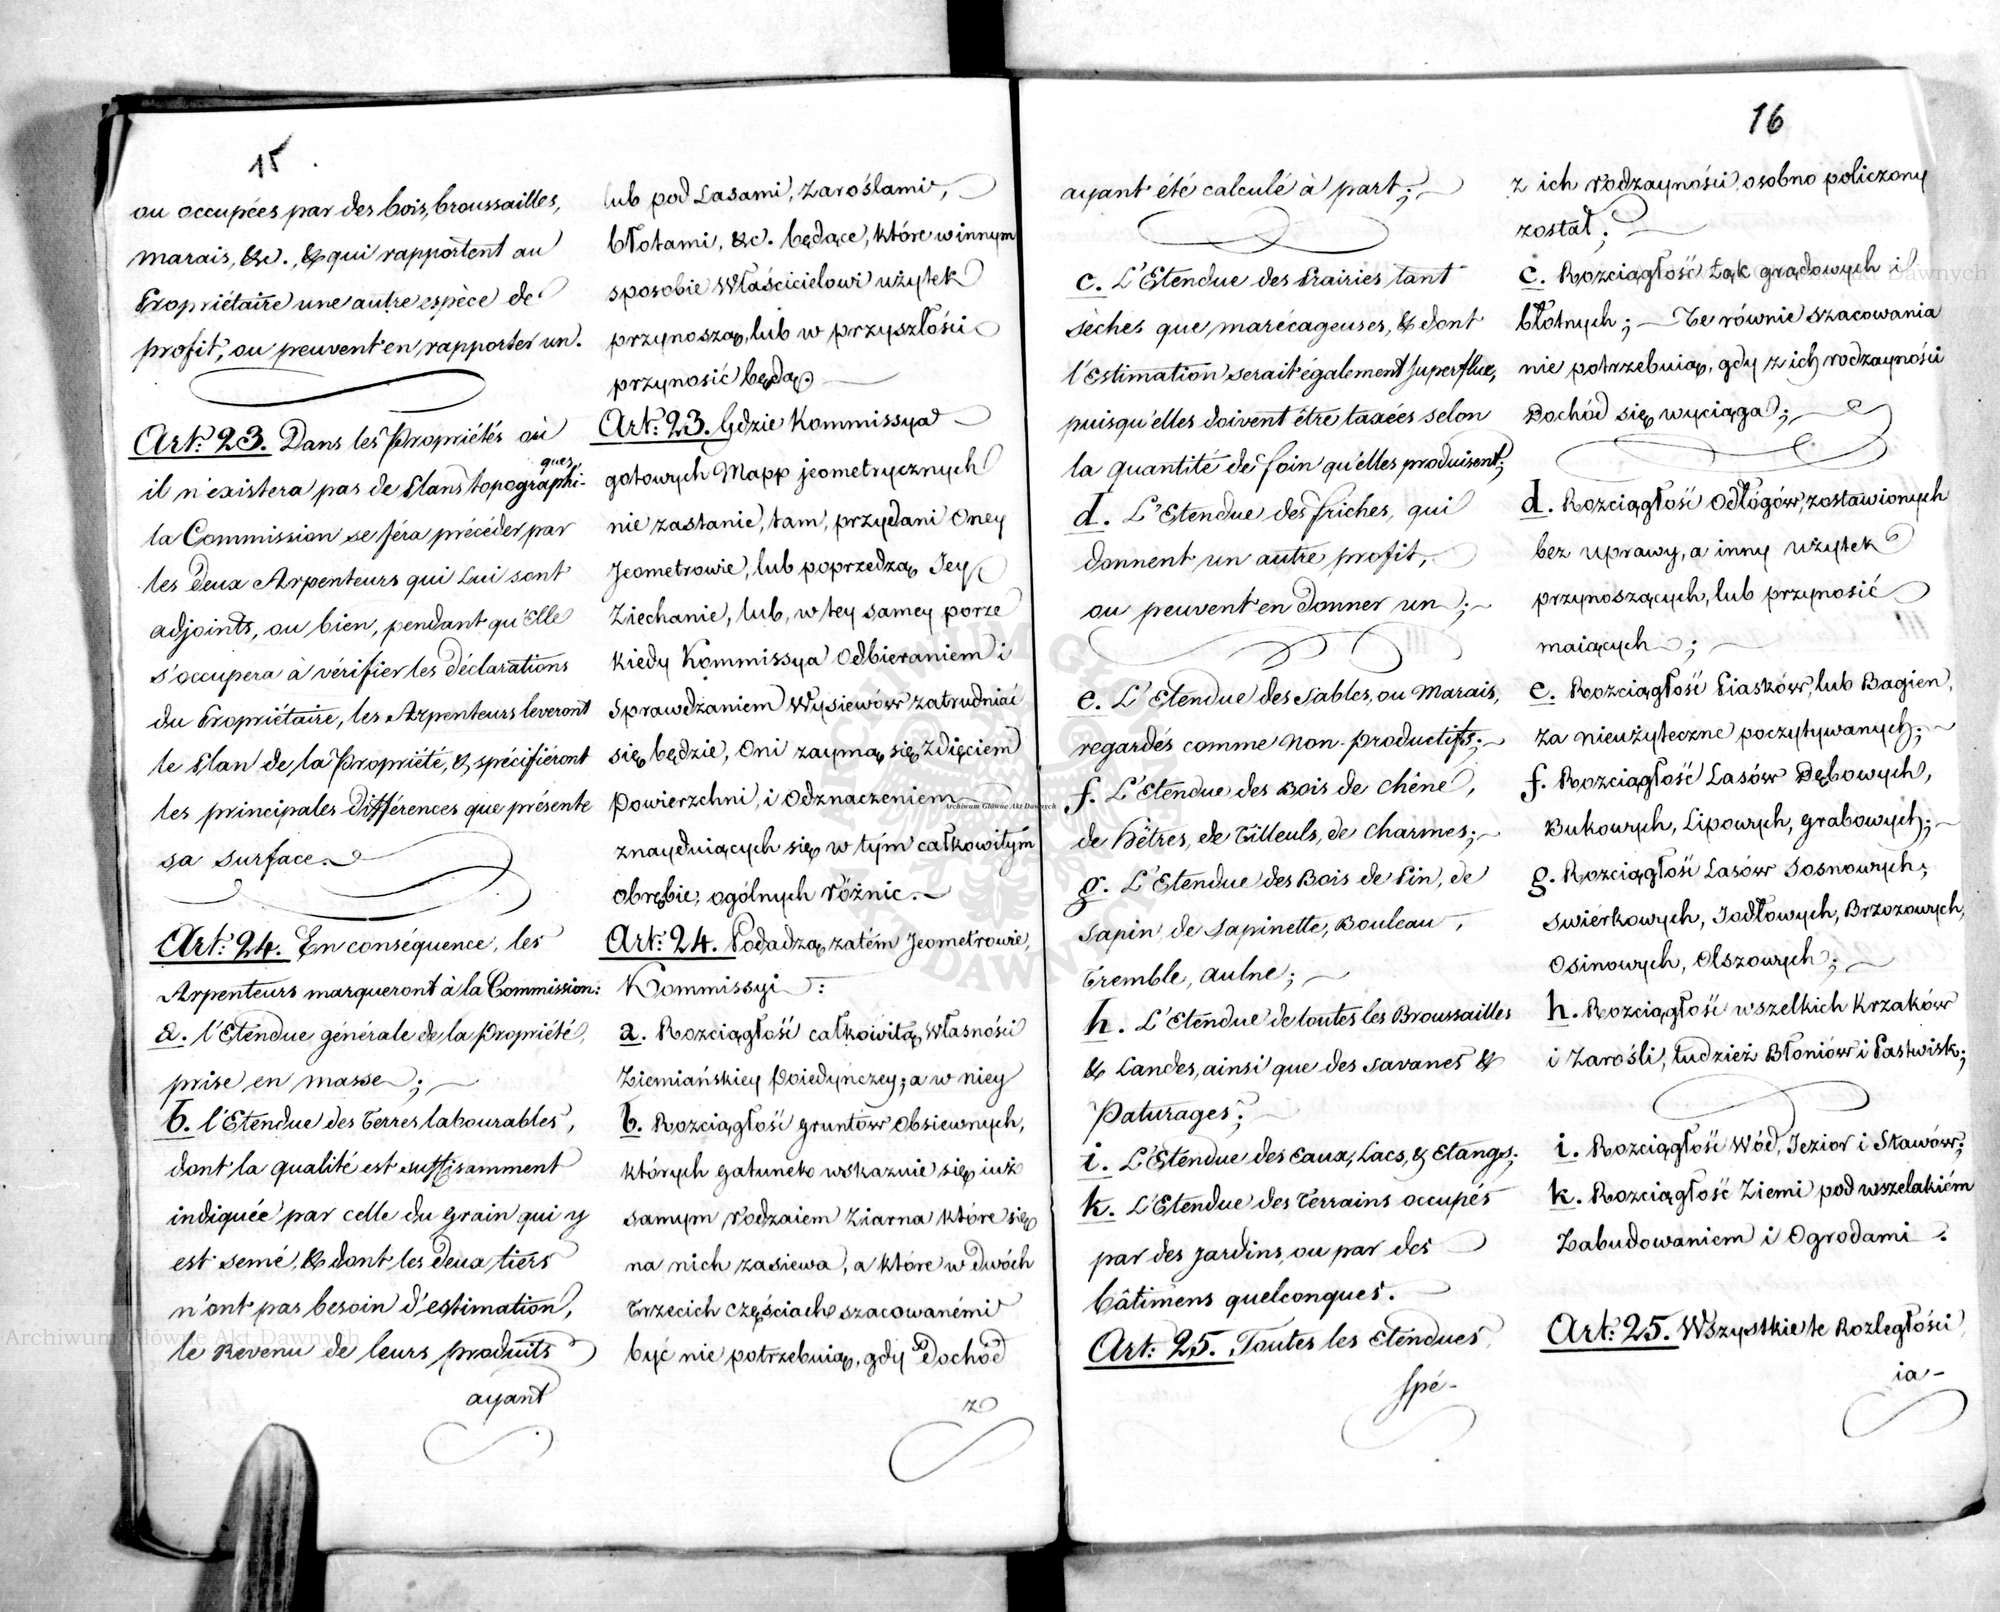 15
ou occupées par des bois, broussailles,
marais, &c., & qui rapportent au
Propriétaire une autre espèce de
profit, ou peuvent en rapporter un.
Art: 23. Dans les Propriétés où
il n'existera pas de Plans topographi-
ques
la Commission se fera précéder par
les deux Arpenteurs qui Lui sont
adjoints, ou bien, pendant qu'Elle
s'occupera à vérifier les déclarations
du Propriétaire, les Arpenteurs leveront
le Plan de la Propriété, & spécifieront
les principales différences que présente
sa surface.
Art: 24. En conséquence, les
Arpenteurs marqueront à la Commission:
a. l'Etendue générale de la Propriété,
prise en masse;
b. l'Etendue des Terres labourables,
dont la qualité est suffisamment
indiquée par celle du grain qui y
est semé, & dont les deux tiers
n'ont pas besoin d'estimation,
le Revenu de leurs produits
ayant
lub pod Lasami, Zaroślami,
błotami, &c. będące, które w innym
sposobie Właścicielowi użytek
przynoszą, lub w przyszłości
przynosić będą.
Art: 23. Gdzie Kommissya
gotowych Mapp jeometrycznych
nie zastanie, tam, przydani Oney
Jeometrowie, lub poprzedzą Jey
Ziechanie, lub, w tey samey porze
kiedy Kommissya Odbieraniem i
Sprawdzaniem Wysiewów zatrudniać
się będzie, Oni zaymą się Zdięciem
Powierzchni, i Odznaczeniem
znayduiących się w tym całkowitym
obrębie, ogólnych różnic.
Art: 24. Podadzą zatém Jeometrowie,
Kommissyi:
a. Rozciągłość całkowitą Własności
Ziemiańskiey Poiedyńczey; a w niey
b. Rozciągłość gruntów Obsiewnych,
których gatunek wskazuie się iuż
samym rodzaiem Ziarna które się
na nich zasiewa, a które w dwóch
Trzecich częściach szacowanémi
być nie potrzebuią, gdy Dochód
z
16
ayant été calculé à part;
c. L'Etendue des Prairies tant
sèches que marécageuses, & dont
l'Estimation serait également superflue,
puisqu'elles doivent être taxées selon
la quantité de foin qu'elles produisent;
d. L'Etendue des friches, qui
donnent un autre profit,
ou peuvent en donner un;
e. L'Etendue des Sables, ou Marais,
regardés comme non-productifs;
f. L'Etendue des Bois de Chêne,
de Hêtres, de Tilleuls, de Charmes;
g. L'Etendue des Bois de Pin, de
Sapin, de Sapinette, Bouleau,
Tremble, Aulne;
h. L'Etendue de toutes les Broussailles
& Landes, ainsi que des Savanes &
Paturages;
i. L'Etendue des Eaux, Lacs, & Etangs;
k. L'Etendue des Terrains occupés
par des Jardins, ou par des
bâtimens quelconques.
Art: 25. Toutes les Etendues
Spé-
z ich rodzayności osobno policzony
został;
c. Rozciągłość Łąk grądowych i
błotnych; — Te równie szacowania
nie potrzebuią, gdy z ich rodzayności
Dochód się wyciąga;
d. Rozciągłość Odłogów, zostawionych
bez uprawy, a inny użytek
przynoszących, lub przynosić
maiących;
e. Rozciągłość Piasków, lub Bagien,
za nieużyteczne poczytywanych;
f. Rozciągłość Lasów Dębowych,
Bukowych, Lipowych, grabowych;
g. Rozciągłość Lasów Sosnowych;
Swierkowych, Jodłowych, Brzozowych,
Osinowych, Olszowych;
h. Rozciągłość wszelkich Krzaków
i Zarośli, tudzież Błoniów i Pastwisk;
i. Rozciągłość Wód, Jezior i Stawów;
k. Rozciągłość Ziemi pod wszelakiém
Zabudowaniem i Ogrodami.
Art: 25. Wszystkie te Rozległości
ia-
Archiwum Główne Akt Dawnych